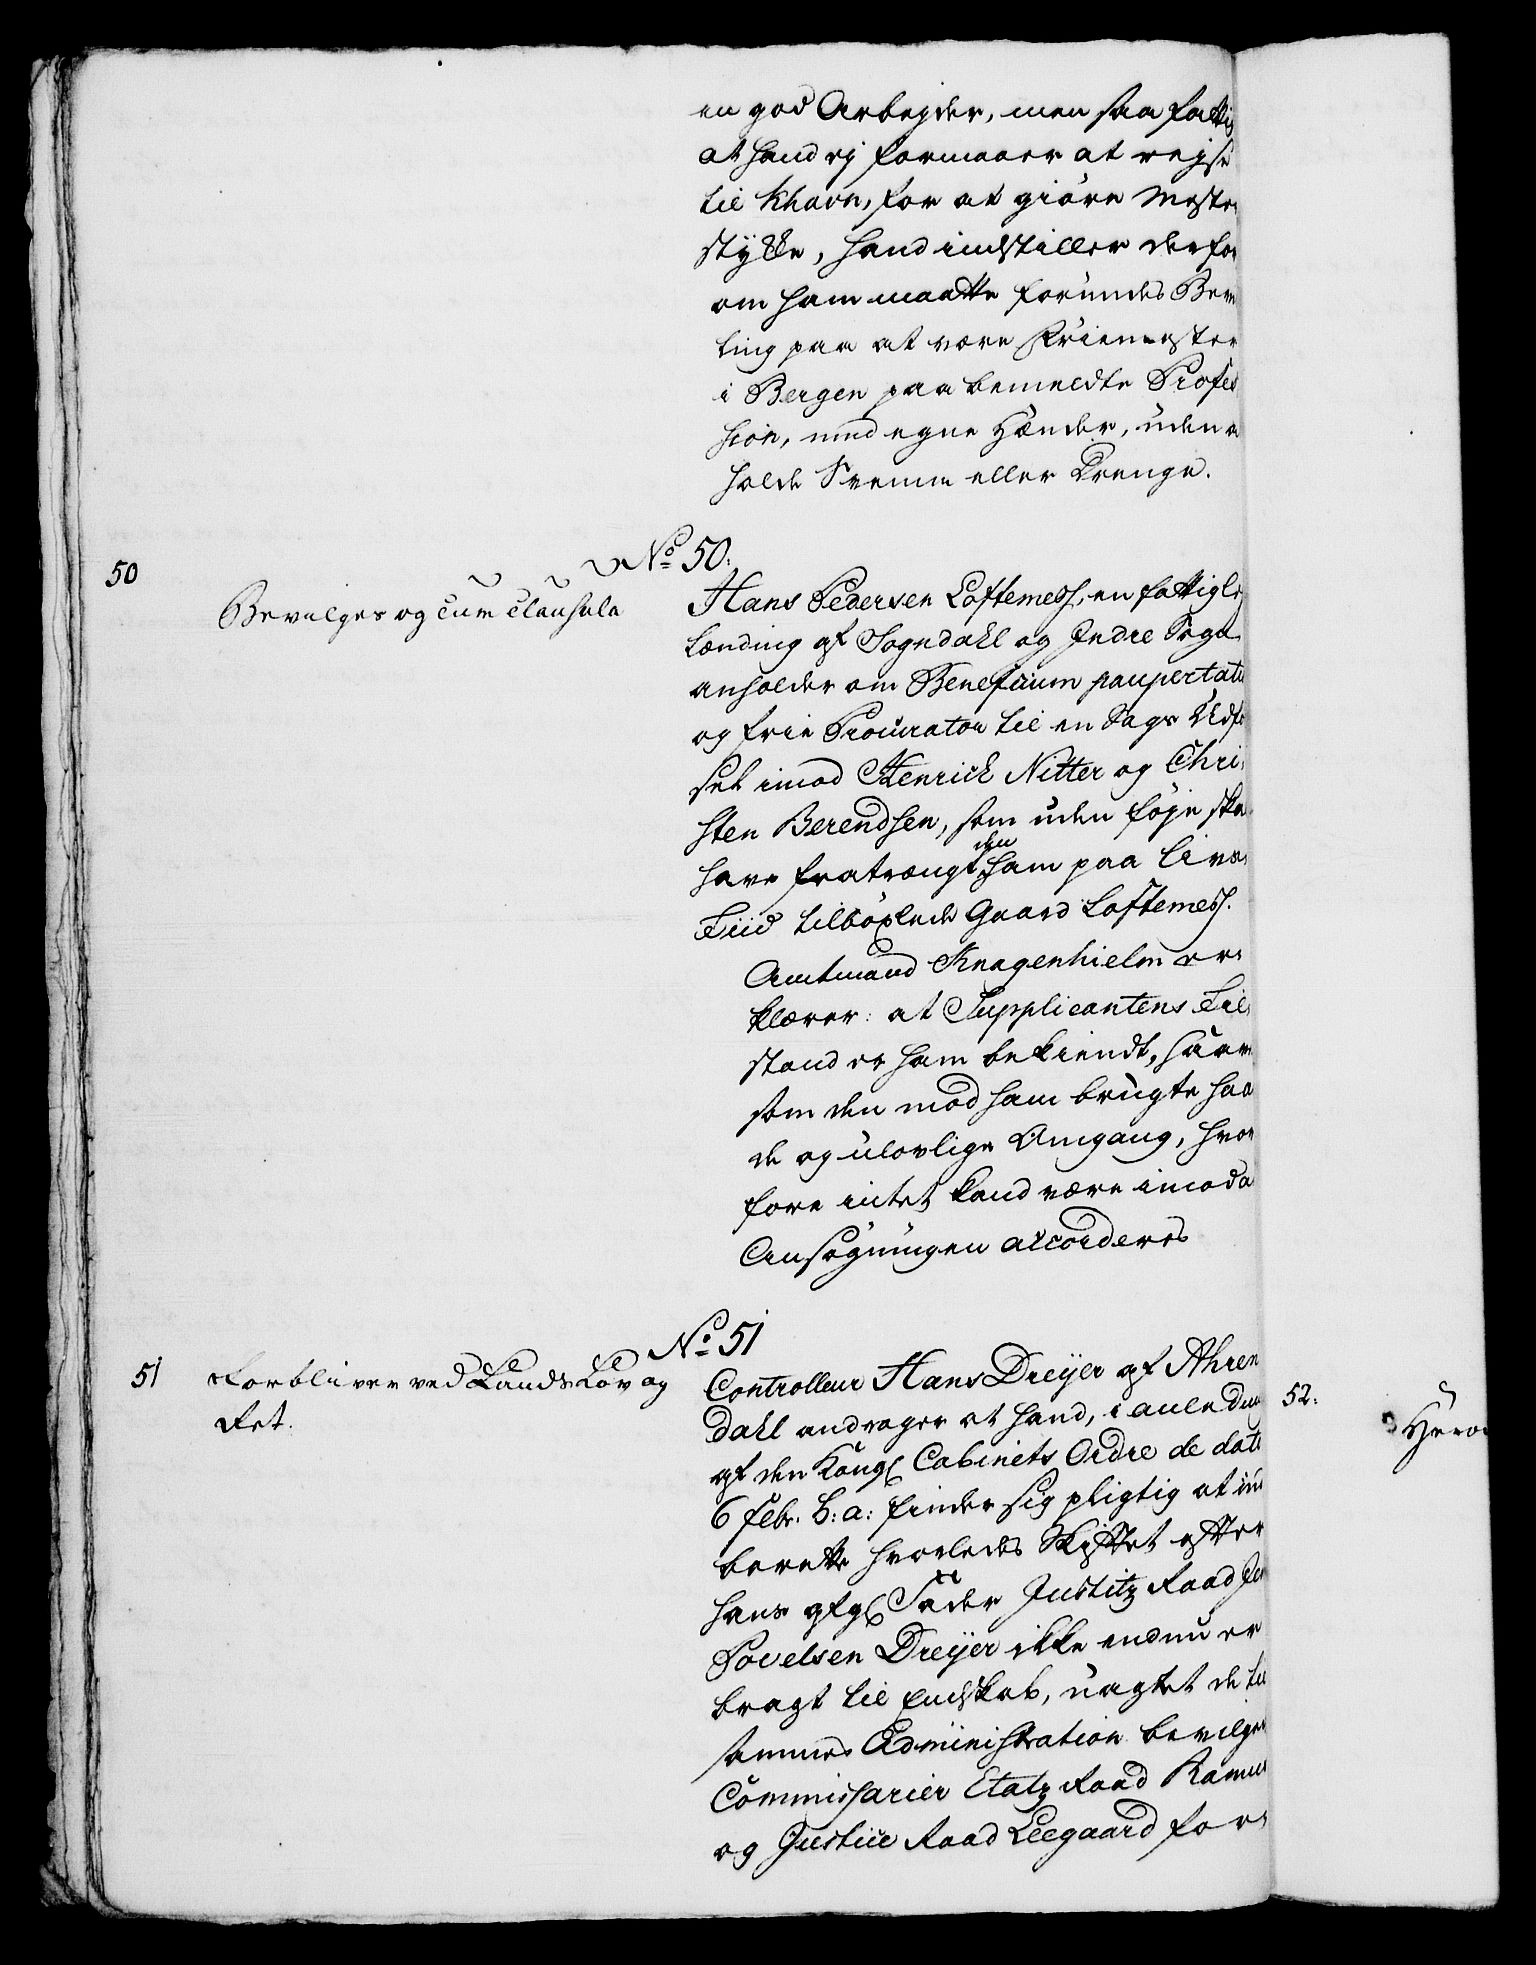 en god Arbejder, men saa fattig
at hand ej formaaer at rejse
til Khavn, for at giöre Mester
stykke, hand indstiller derfor
om ham maatte forundes Beve
ling paa at være Friemester
i Bergen paa bemeldte Profes
sion, med egne Hænder, uden a
holde Svenne eller Drenge.
No 50.
50
Bevilges og cum clausula
Hans Pedersen Loftemess, en fattig
lænding af Sogndahl og Indre Sogn
anholder om Beneficium paupertatis
og frie Procurator til en Sags Udfø
sel imod Henrich Nitter og Chri
sten Berendsen, som uden föje skal
have fratrængt den ham paa Livs
Tiid tilböxlede Gaard Loftemess.
Amtmand Knagenhielm er
klærer: at Supplicantens Til
stand er ham bekiendt, saavel
som den mod ham brugte haar
de og ulovlige Omgang, hvor
fore intet kand være imod at
Ansögningen accorderes
No 51
51
Forbliver ved Lands Lov og
Ret.
Controlleur Hans Dreÿer af Ahren
dahl andrager at hand, i anledning
af den Kongl Cabinets Ordre de dato
6 Febr. h: a: finder sig pligtig at ind
berette hvorledes Skiftet efter
hans afgl Fader Justitz Raad
Povelsen Dreÿer ikke endnu er
bragt til Endskab, uagtet de til
sammes Administration bevilgede
Commissarier Etatz Raad Ramus
og Justice Raad Leegaard for
52: